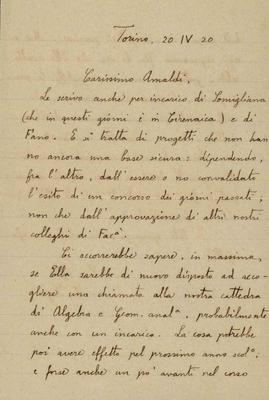 Torino, 20 IV 20
Carissimo Amaldi,
Le scrivo anche per incarico di Somigliana
(che in questi giorni è in Cirenaica) e di
Fano. E si tratta di progetti che non han
no ancora una base sicura: dipendendo,
fra l'altro, dall'essere o no convalidato
l'esito di un concorso dei giorni passati;
non che dall'approvazione di altri nostri
colleghi di Facà.
Ci occorrerebbe sapere, in massima,
se Ella sarebbe di nuovo disposto ad acco-
gliere una chiamata alla nostra cattedra
di Algebra e Geom. anal.a, probabilmente
anche con un incarico. La cosa potrebbe
poi avere effetto pel prossimo anno scol.o;
e forse anche un po' avanti nel corso